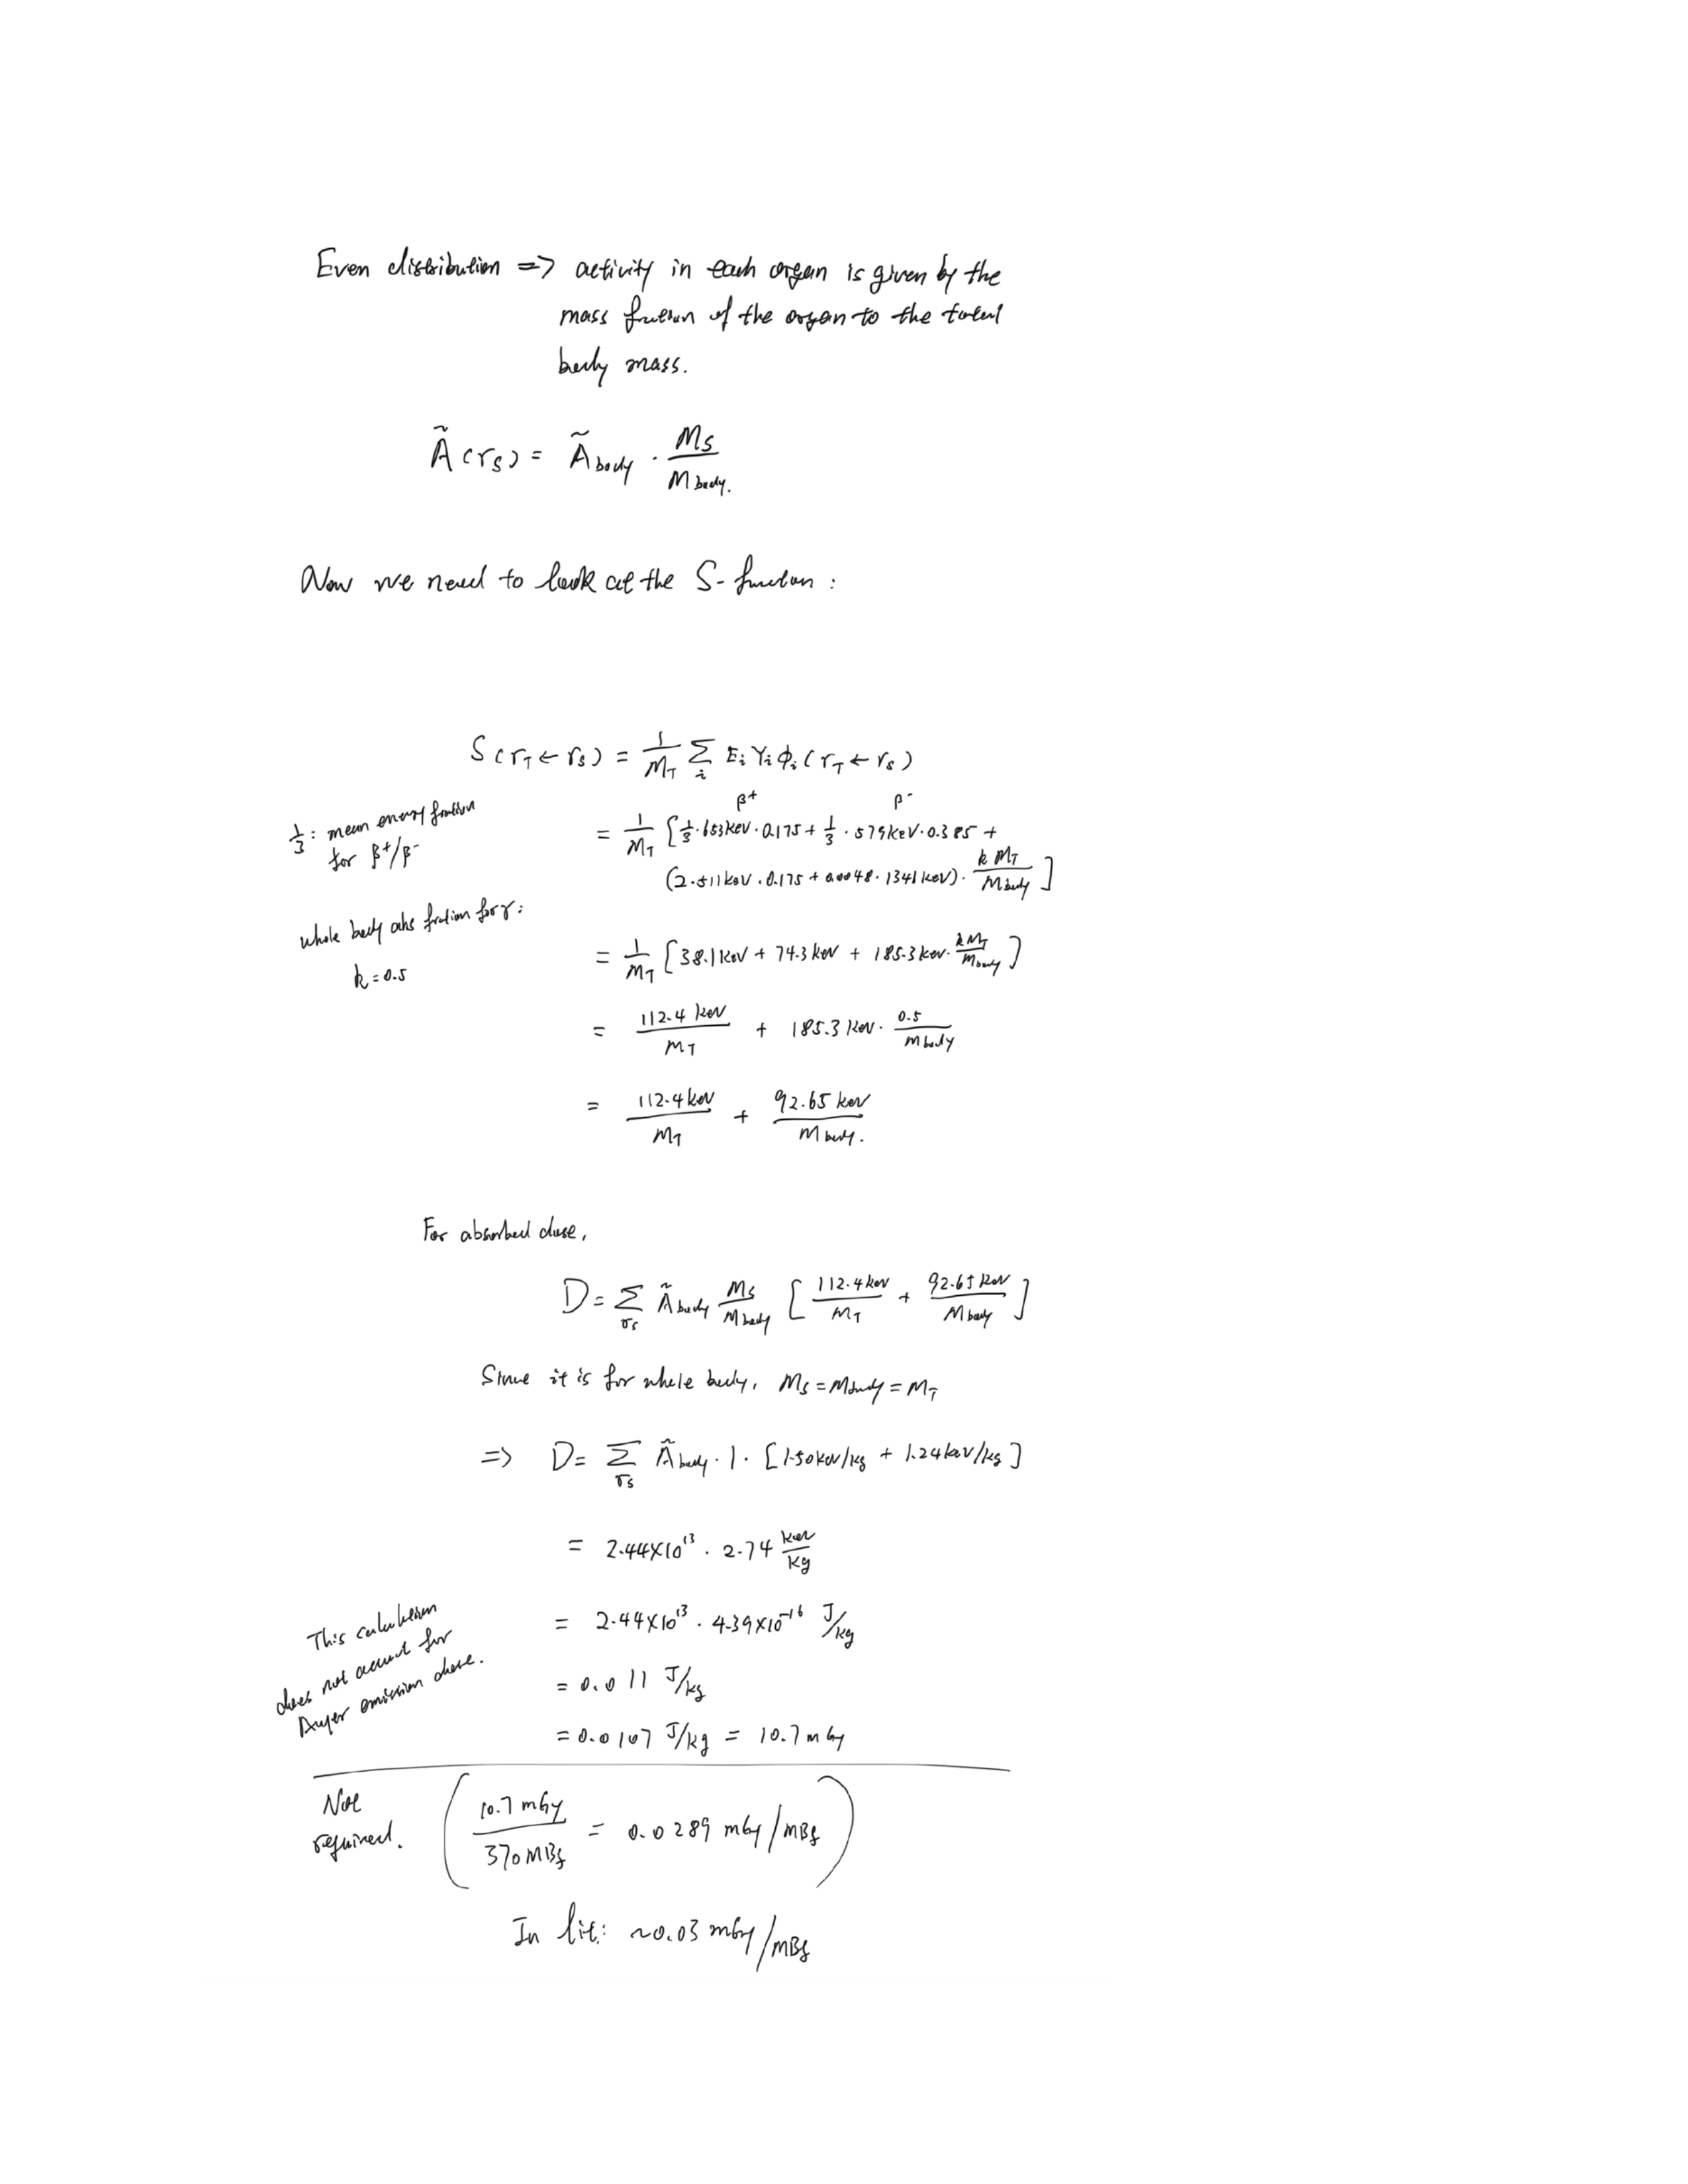 Even distribution => activity in each organ is given by the
mass fraction of the organ to the total
body mass.
Ã(r_S) = Ã_body · M_S / M_body.
Now we need to look at the S-function:
S(r_T ← r_S) = 1/M_T Σ_i E_i Y_i ϕ_i (r_T ← r_S)
β⁺ β⁻
1/3: mean energy fraction
for β⁺/β⁻
= 1/M_T [1/3 · 653 keV · 0.175 + 1/3 · 579 keV · 0.385 +
(2·511 keV · 0.175 + 0.0048 · 1341 keV) · k M_T / M_body]
whole body abs fraction for γ:
k = 0.5
= 1/M_T [38.1 keV + 74.3 keV + 185.3 keV · k M_T / M_body]
= 112.4 keV / M_T + 185.3 keV · 0.5 / M_body
= 112.4 keV / M_T + 92.65 keV / M_body.
For absorbed dose,
D = Σ_{r_S} Ã_body M_S / M_body [112.4 keV / M_T + 92.65 keV / M_body]
Since it is for whole body, M_S = M_body = M_T
=> D = Σ_{r_S} Ã_body · 1 · [1.50 keV/kg + 1.24 keV/kg]
= 2.44×10¹³ · 2.74 keV/kg
This calculation
does not account for
Auger emission dose.
= 2.44×10¹³ · 4.39×10⁻¹⁶ J/kg
= 0.011 J/kg
= 0.0107 J/kg = 10.7 mGy
Not
required.
(10.7 mGy / 370 MBq = 0.0289 mGy/MBq)
In lit: ~0.03 mGy/MBq